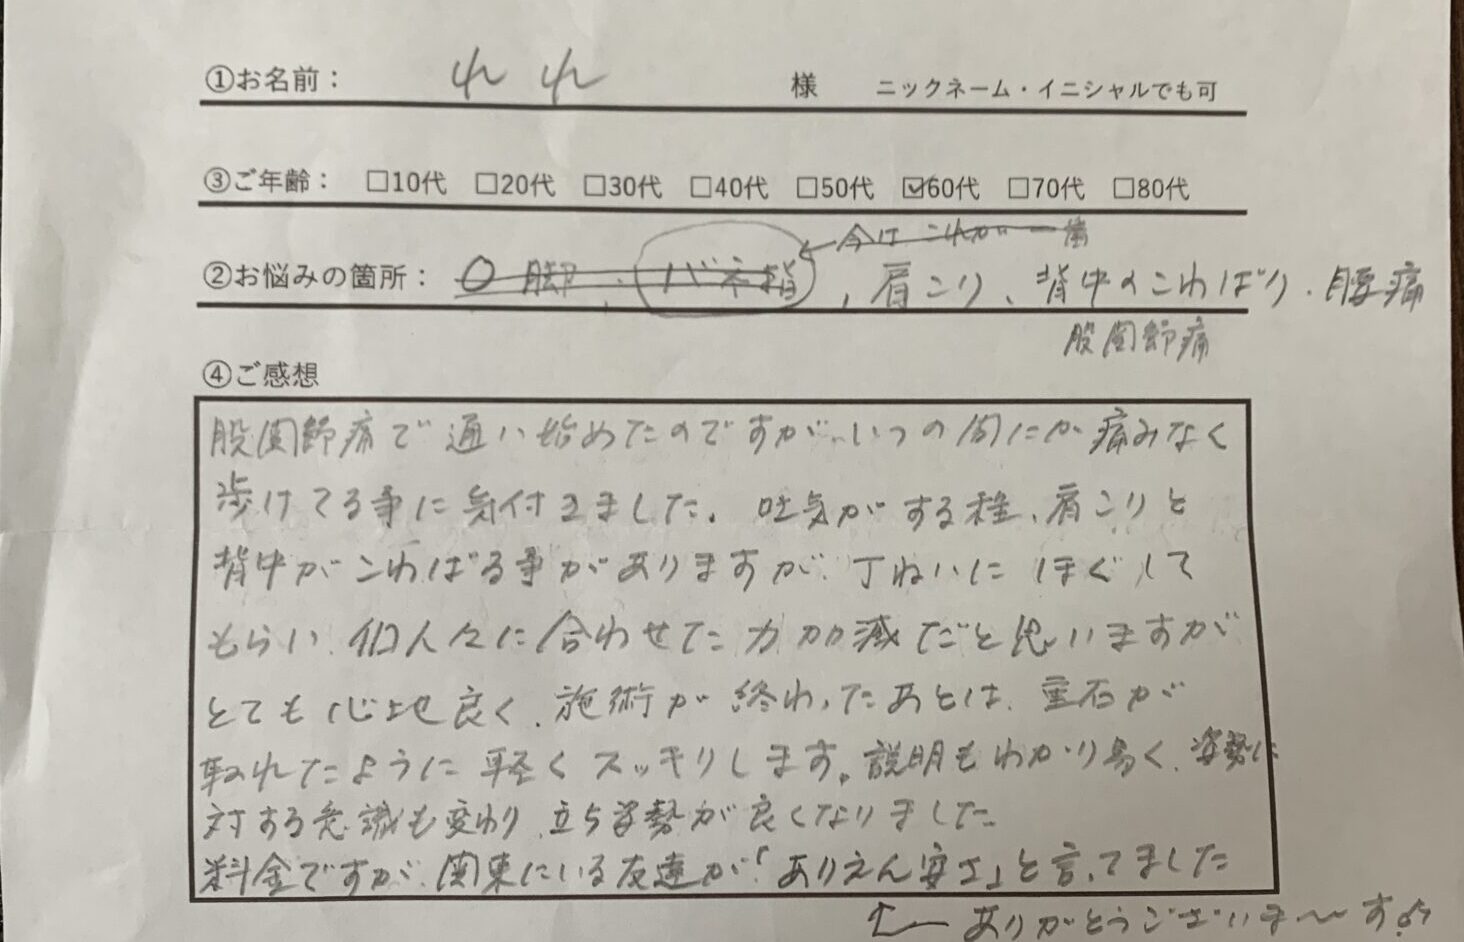 ①お名前： れれ 様 ニックネーム・イニシャルでも可
③ご年齢： □10代 □20代 □30代 □40代 □50代 ☑60代 □70代 □80代
←今は これが一番
②お悩みの箇所： O脚、バネ指、肩こり、背中のこわばり、腰痛
股関節痛
④ご感想
股関節痛で通い始めたのですが、いつの間にか痛みなく
歩けてる事に気付きました。吐気がする程、肩こりと
背中がこわばる事がありますが、丁ねいにほぐして
もらい、個人々に合わせた力加減だと思いますが
とても心地良く、施術が終わったあとは、重石が
取れたように軽くスッキリします。説明もわかり易く、姿勢に
対する意識も変わり、立ち姿勢が良くなりました
料金ですが、関東にいる友達が「ありえん安さ」と言ってました
↑ ありがとうございま〜す♪